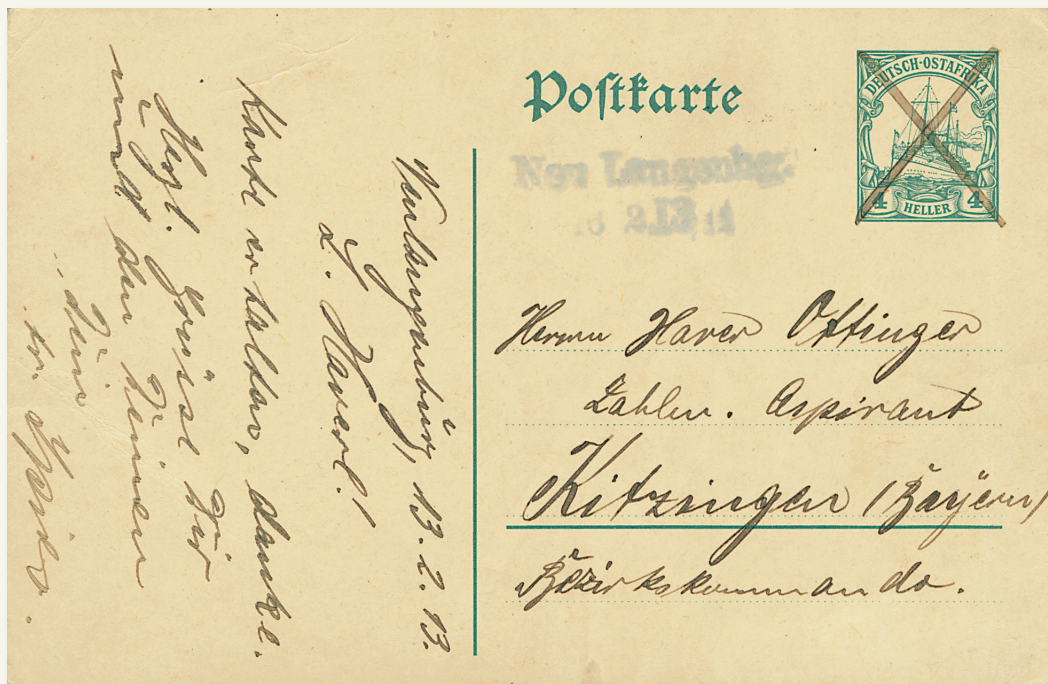 Postkarte
DEUTSCH-OSTAFRIKA
4 HELLER 4
Neu Langenbg.
2.13
Herrn Xaver Ottinger
Zahlm. Aspirant
Kitzingen (Bayern)
Bezirkskommando.
13. 2. 13.
L. Xaverl!
Karte erhalten, danke.
Herzl. Grüsse Dir
und den Deinen
Dein